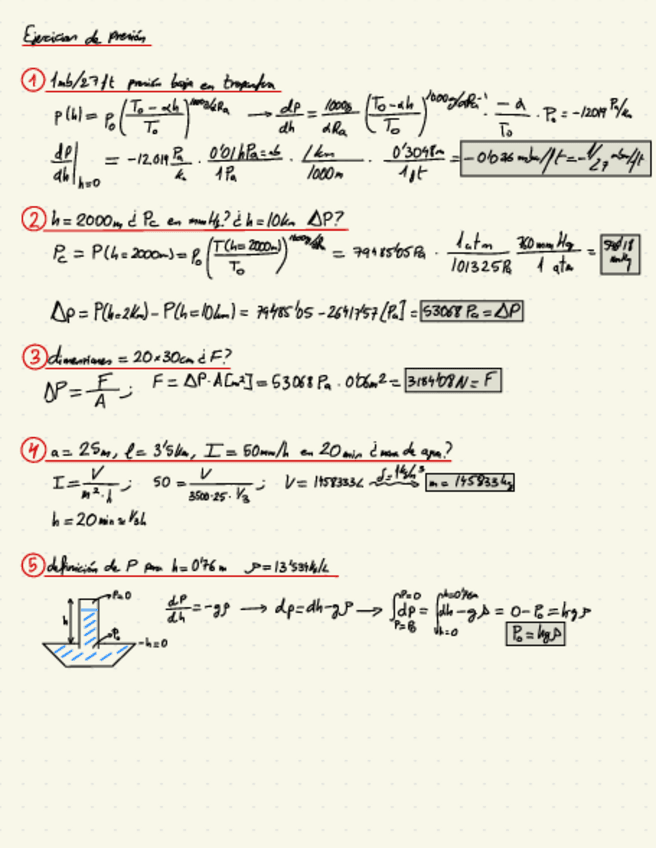 Ejercicios de presión
① 1mb/27ft presión baja en troposfera
P(h) = P₀ ((T₀ - αh)/T₀)^(1000g/αRa) → dp/dh = 1000g/αRa ((T₀ - αh)/T₀)^(1000g/αRa - 1) · -α/T₀ · P₀ = -12019 Pa/km
dp/dh |h=0 = -12,019 Pa/k · 0'01hPa=mb/1Pa · 1km/1000m · 0'3048m/1ft = -0'036 mbar/ft = -1/27 mbar/ft
② h = 2000m ¿ Pc en mmHg? ¿ h = 10km ΔP?
Pc = P(h=2000m) = P₀ (T(h=2000m)/T₀) = 79485'05Pa · 1atm/101325Pa 760mmHg/1 atm =
Δp = P(h=2km) - P(h=10km) = 79485'05 - 26417'57 [Pa] = 53068 Pa = ΔP
③ dimensiones = 20x30cm ¿ F?
ΔP = F/A ; F = ΔP·A[m²] = 53068 Pa · 0'06m² = 3184'08N = F
④ a = 25m, l = 3'5km, I = 50mm/h en 20min ¿ masa de agua?
I = V/m²·h ; 50 = V/3500·25·1/3 ; V = 1458333L m = 1458333kg
h = 20min ≈ 1/3h
⑤ definición de P para h = 0'76m ρ = 13'534kg/L
h P=0 P₀ -h=0
dP/dh = -gρ → dp = dh-gρ → ∫dp = ∫dh-gρ = 0-P₀ = hgρ
P=0 P=P₀ h=0'76m h=0
P₀ = hgρ